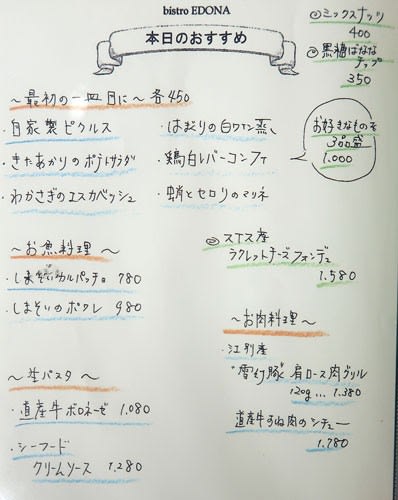 bistro EDONA
本日のおすすめ
◎ミックスナッツ
400
◎黒糖ばなな
チップ
350
〜最初の一皿目に〜 各450
・自家製ピクルス
・きたあかりのポテトサラダ
・わかさぎのエスカベッシュ
・はまぐりの白ワイン蒸し
・鶏白レバーコンフィ
・蛸とセロリのマリネ
お好きなものを
3品盛
1.000
〜お魚料理〜
・しまぞいカルパッチョ 780
・しまぞいのポワレ 980
◎スイス産
ラクレットチーズフォンデュ
1.580
〜お肉料理〜
・江別産
"雪幻豚"肩ロース肉グリル
120g... 1.380
道産牛すね肉のシチュー
1.780
〜生パスタ〜
・道産牛ボロネーゼ 1.080
・シーフード
クリームソース 1.280